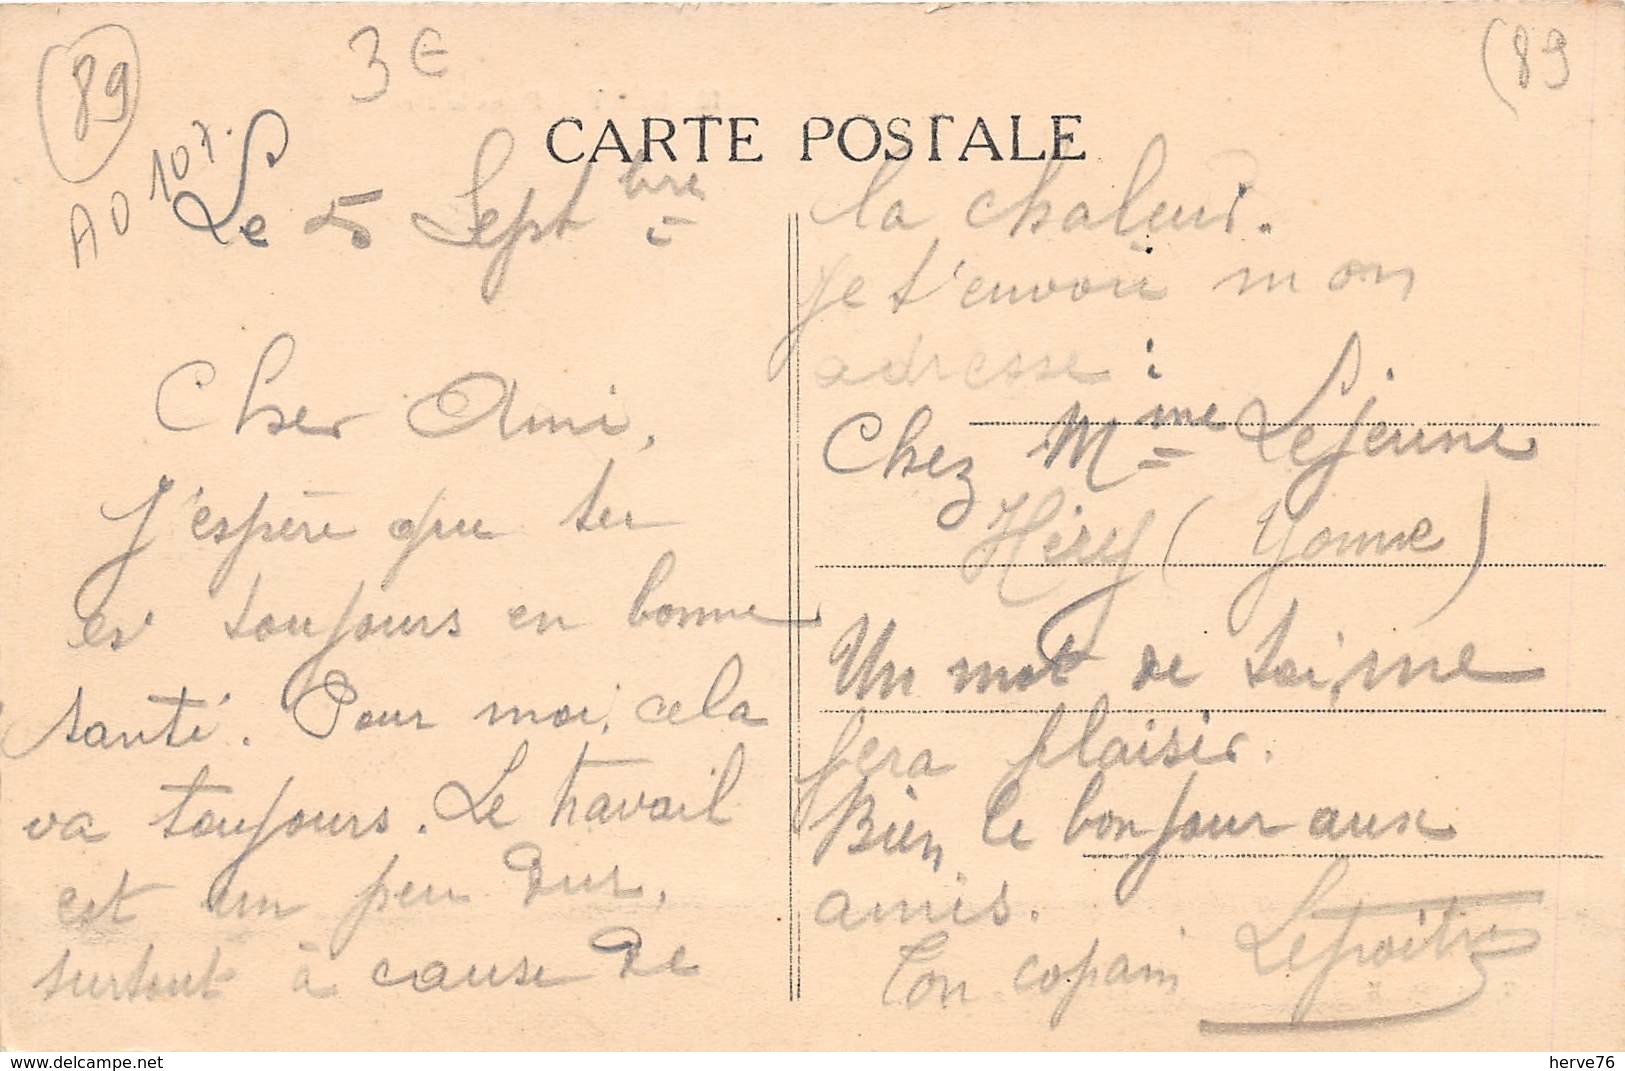 89
3€
(89
AD 107.
CARTE POSTALE
Le 5 Septbre
Cher Ami,
J'espère que tu
es toujours en bonne
santé. Pour moi, cela
va toujours. Le travail
est un peu dur,
surtout à cause de
la chaleur.
Je t'envoie mon
adresse :
Chez Mme Lejeune
Héry (Yonne)
Un mot de toi, me
fera plaisir.
Bien le bonjour aux
amis.
Ton copain
delcampe.net
herve76